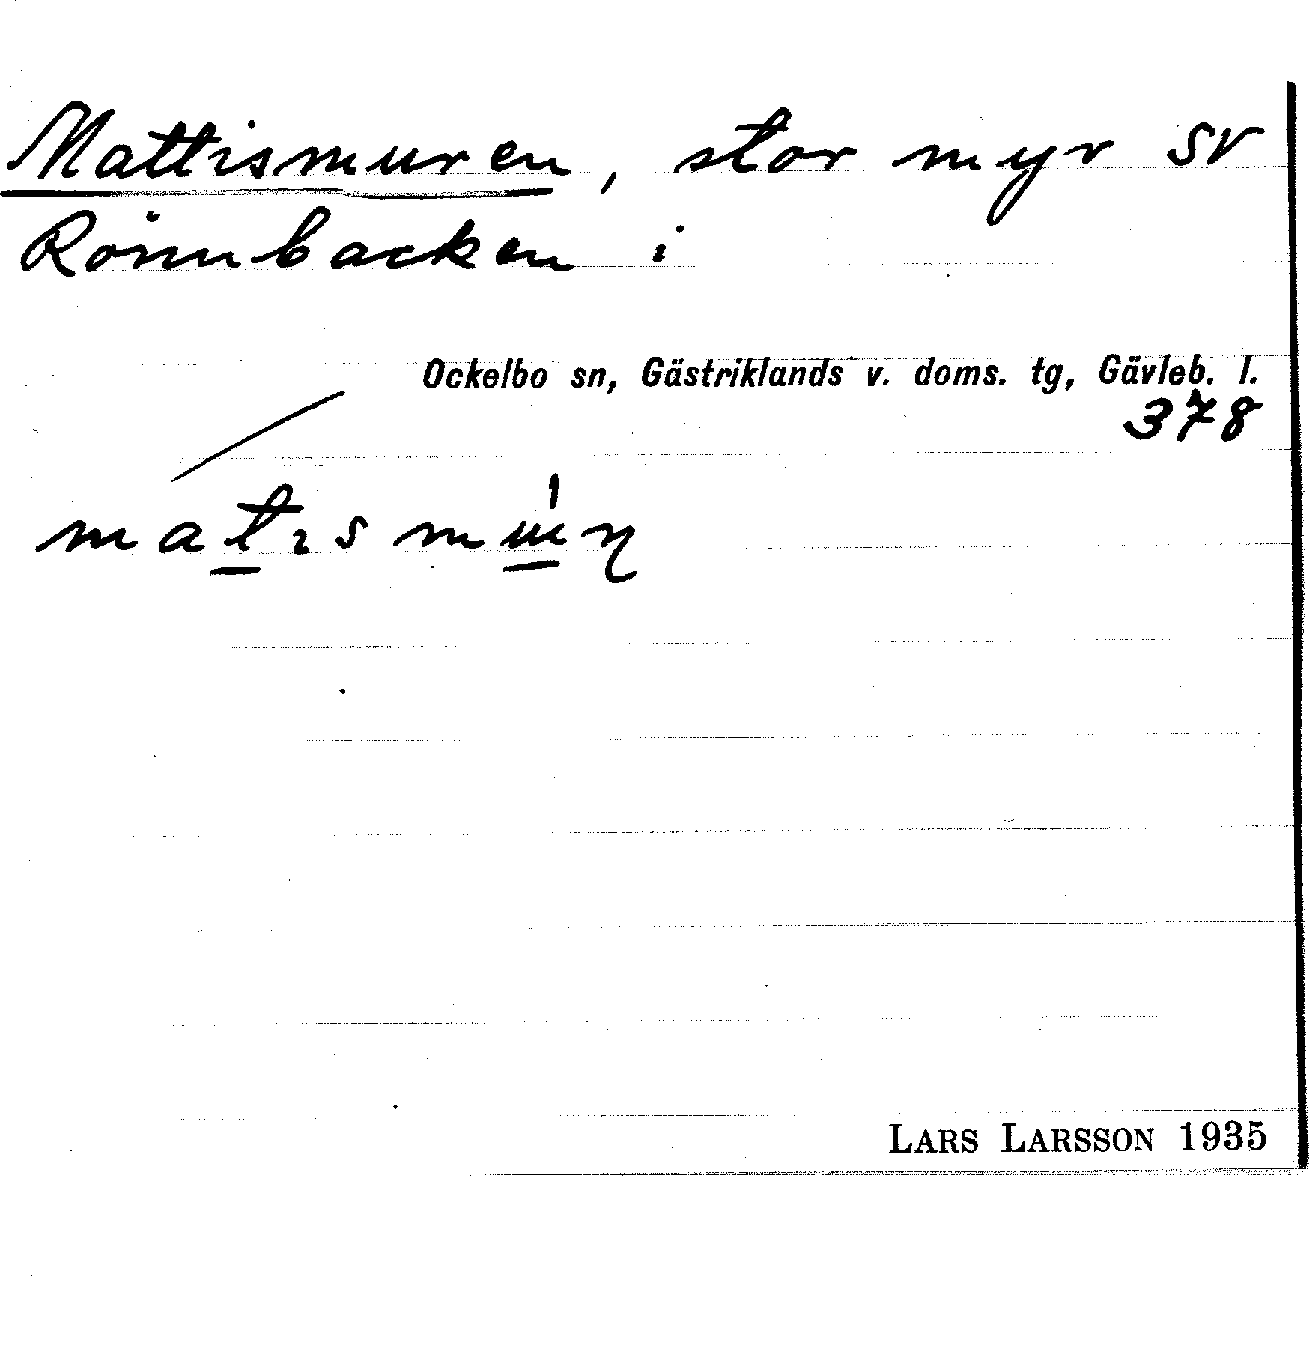 Mattismuren, stor myr SV
Rönnbacken i
Ockelbo sn, Gästriklands v. doms. tg, Gävleb. l.
378
LARS LARSSON 1935